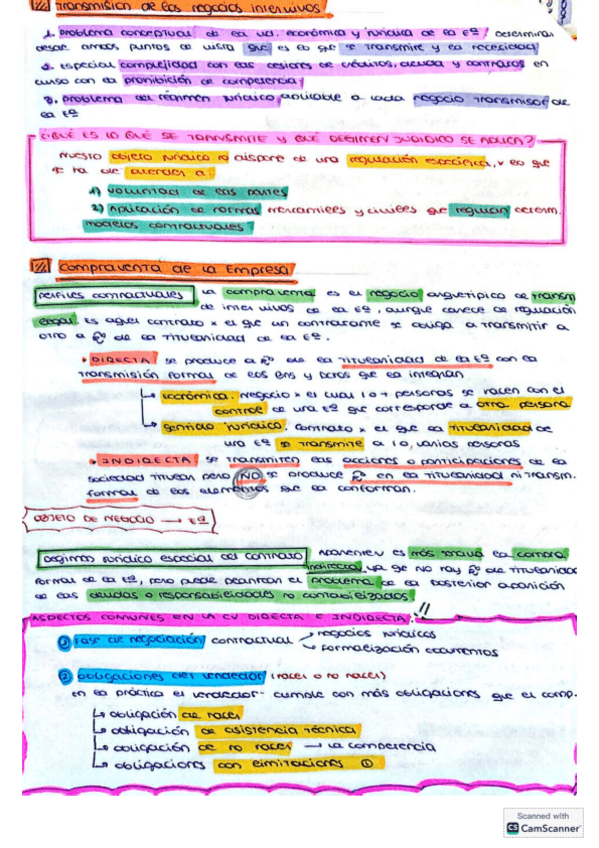 Transmisión de los negocios intervivos
1. problema conceptual de la ud. económica y jurídica de la Eª / determinar
desde ambos puntos de vista que es lo que se transmite y la necesidad
2. especial complejidad con las cesiones de créditos, deuda y contratos en
curso con la prohibición de competencia /
3. problema del régimen jurídico aplicable a cada negocio transmisor de
la Eª
¿QUÉ ES LO QUE SE TRANSMITE Y QUÉ REGIMEN JURÍDICO SE APLICA?
nuestro objeto jurídico no dispone de una regulación específica, x lo que
se ha de atender a:
1) voluntad de las partes
2) Aplicación de normas mercantiles y civiles que regulan determ.
modelos contractuales
Compraventa de la Empresa
perfiles contractuales La compraventa es el negocio arquetípico de transm
de inter vivos de la Eª, aunque carece de regulación
legal. Es aquel contrato x el que un contratante se obliga a transmitir a
otro a de la titularidad de la Eª.
• DIRECTA / se produce a de la titularidad de la Eª con la
transmisión formal de los bns y dchos que la integran
↳ económica. Negocio x el cual 1 o + personas se hacen con el
control de una Eª que corresponde a otra persona
↳ sentido jurídico. Contrato x el que la titularidad de
una Eª se transmite a 1 o, varias personas
• INDIRECTA / se transmiten las acciones o participaciones de la
sociedad titular pero NO se produce en la titularidad ni transm.
formal de los elementos que la conforman.
OBJETO DE NEGOCIO → Eª
Régimen jurídico especial del contrato es más la compra
indirecta, ya se no hay de titularidad
formal de la Eª, pero puede plantear el problema de la posterior aparición
de las deudas o responsabilidades no contabilizados.
ASPECTOS COMUNES EN LA CV DIRECTA E INDIRECTA. !!
① Fase de negociación contractual → negocios jurídicos
→ formalización documentos
② obligaciones del vendedor (hacer o no hacer)
en la práctica el vendedor cumple con más obligaciones que el comp.
↳ obligación de hacer
↳ obligación de asistencia técnica
↳ obligación de no hacer → la competencia
↳ obligaciones con limitaciones ①
Scanned with
CS CamScanner